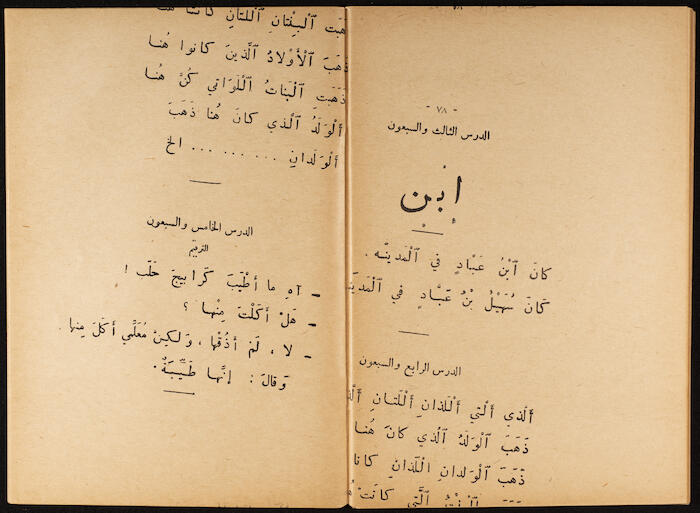 - ٧٨ -
الدرس الثالث والسبعون
إِبْن
كانَ ٱبْنُ عَبَّادٍ في ٱلْمَدينَه .
كَانَ سُهَيْلُ بْنُ عَبَّادٍ في ٱلْمَدينَ
الدرس الرابع والسبعون
أَلَّذي أَلَّتي أَللَّذانِ أَللَّتانِ
ذَهَبَ ٱلْوَلَدُ ٱلَّذي كانَ هُنا
ذَهَبَ ٱلْوَلَدانِ ٱللَّذانِ كانا
ٱلْبِنْتُ ٱلَّتي كانَتْ
ٱلْبِنْتانِ ٱللَّتانِ كانَتا
ذَهَبَ ٱلْأَوْلادُ ٱلَّذينَ كانوا هُنا
ذَهَبَتِ ٱلْبَناتُ ٱللَّوَاتي كُنَّ هُنا
أَلْوَلَدُ ٱلَّذي كانَ هُنا ذَهَبَ
أَلْوَلَدانِ ... ... ... الخ
الدرس الخامس والسبعون
الترقيم
ـ آهِ ما أَطْيَبَ كَرابيجَ حَلَب !
ـ هَلْ أَكَلْتَ مِنْها ؟
ـ لا ، لَمْ أَذُقْها ، وَلكِنْ مُعَلِّمي أَكَلَ مِنها .
وَقالَ : إِنَّها طَيِّبَةٌ .